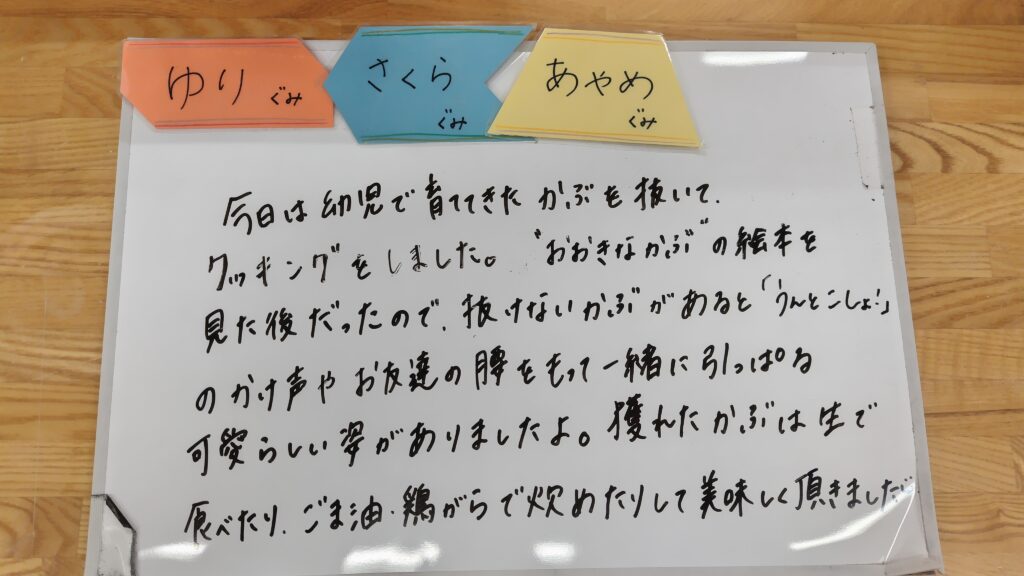 ゆり ぐみ
さくら ぐみ
あやめ ぐみ
今日は幼児で育ててきたかぶを抜いて、
クッキングをしました。"おおきなかぶ"の絵本を
見た後だったので、抜けないかぶがあると「うんとこしょ!」
のかけ声やお友達の腰をもって一緒に引っぱる
可愛らしい姿がありましたよ。獲れたかぶは生で
食べたり、ごま油・鶏がらで炒めたりして美味しく頂きました!